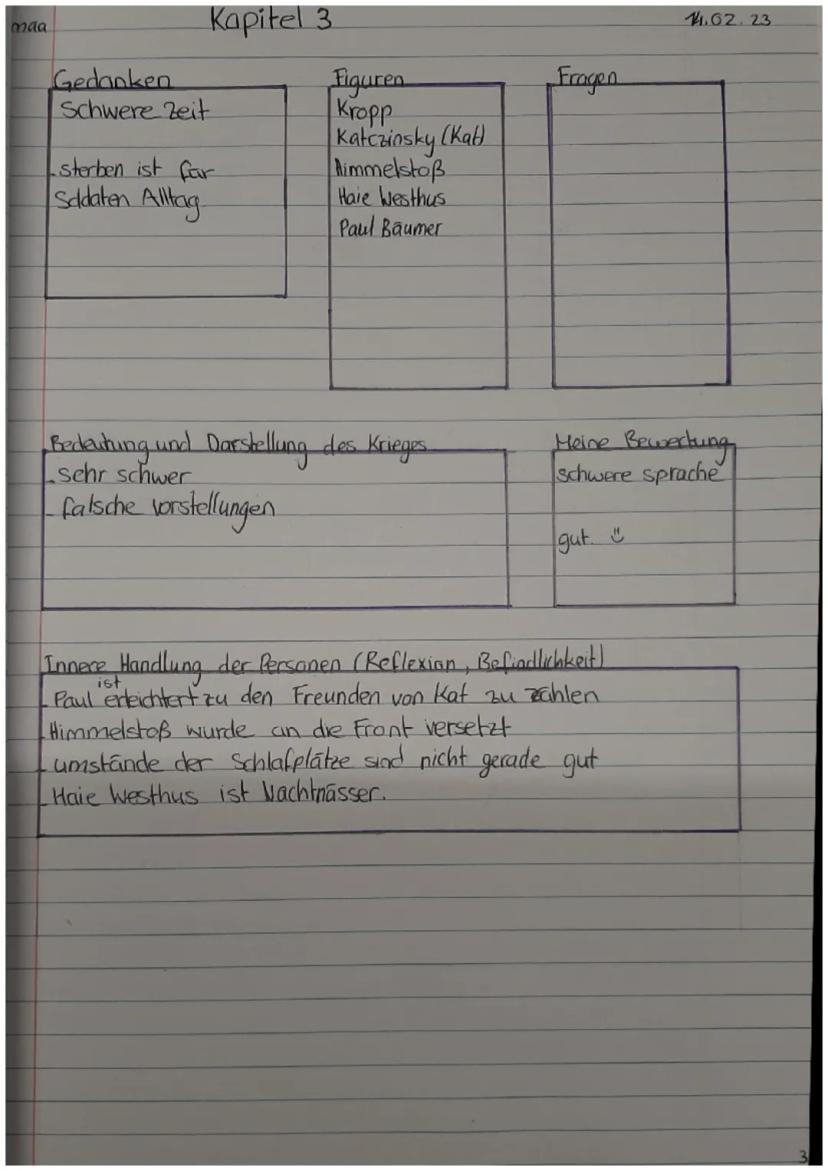 maa
Kapitel 3
14.02.23
Gedanken
Schwere Zeit
- sterben ist für
Soldaten Alltag
Figuren
Kropp
Katczinsky (Kat)
Himmelstoß
Haie Westhus
Paul Bäumer
Fragen
Bedeutung und Darstellung des Krieges
- sehr schwer
- falsche vorstellungen
Meine Bewertung
schwere sprache
gut. ü
Innere Handlung der Personen (Reflexion, Befindlichkeit)
- Paul ist erleichtert zu den Freunden von Kat zu zählen
- Himmelstoß wurde an die Front versetzt
- umstände der Schlafplätze sind nicht gerade gut
- Haie Westhus ist Nachtnässer.
3